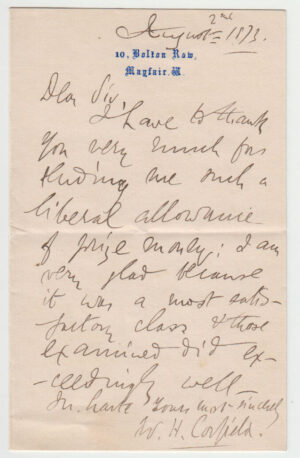 August 2nd 1873.
10, Bolton Row,
Mayfair. W.
Dear Sir
I have to thank
you very much for
sending me such a
liberal allowance
of prize money; I am
very glad because
it was a most satis-
factory class & those
examined did ex-
-ceedingly well-
In haste Yours most sincerely
W. H. Corfield.